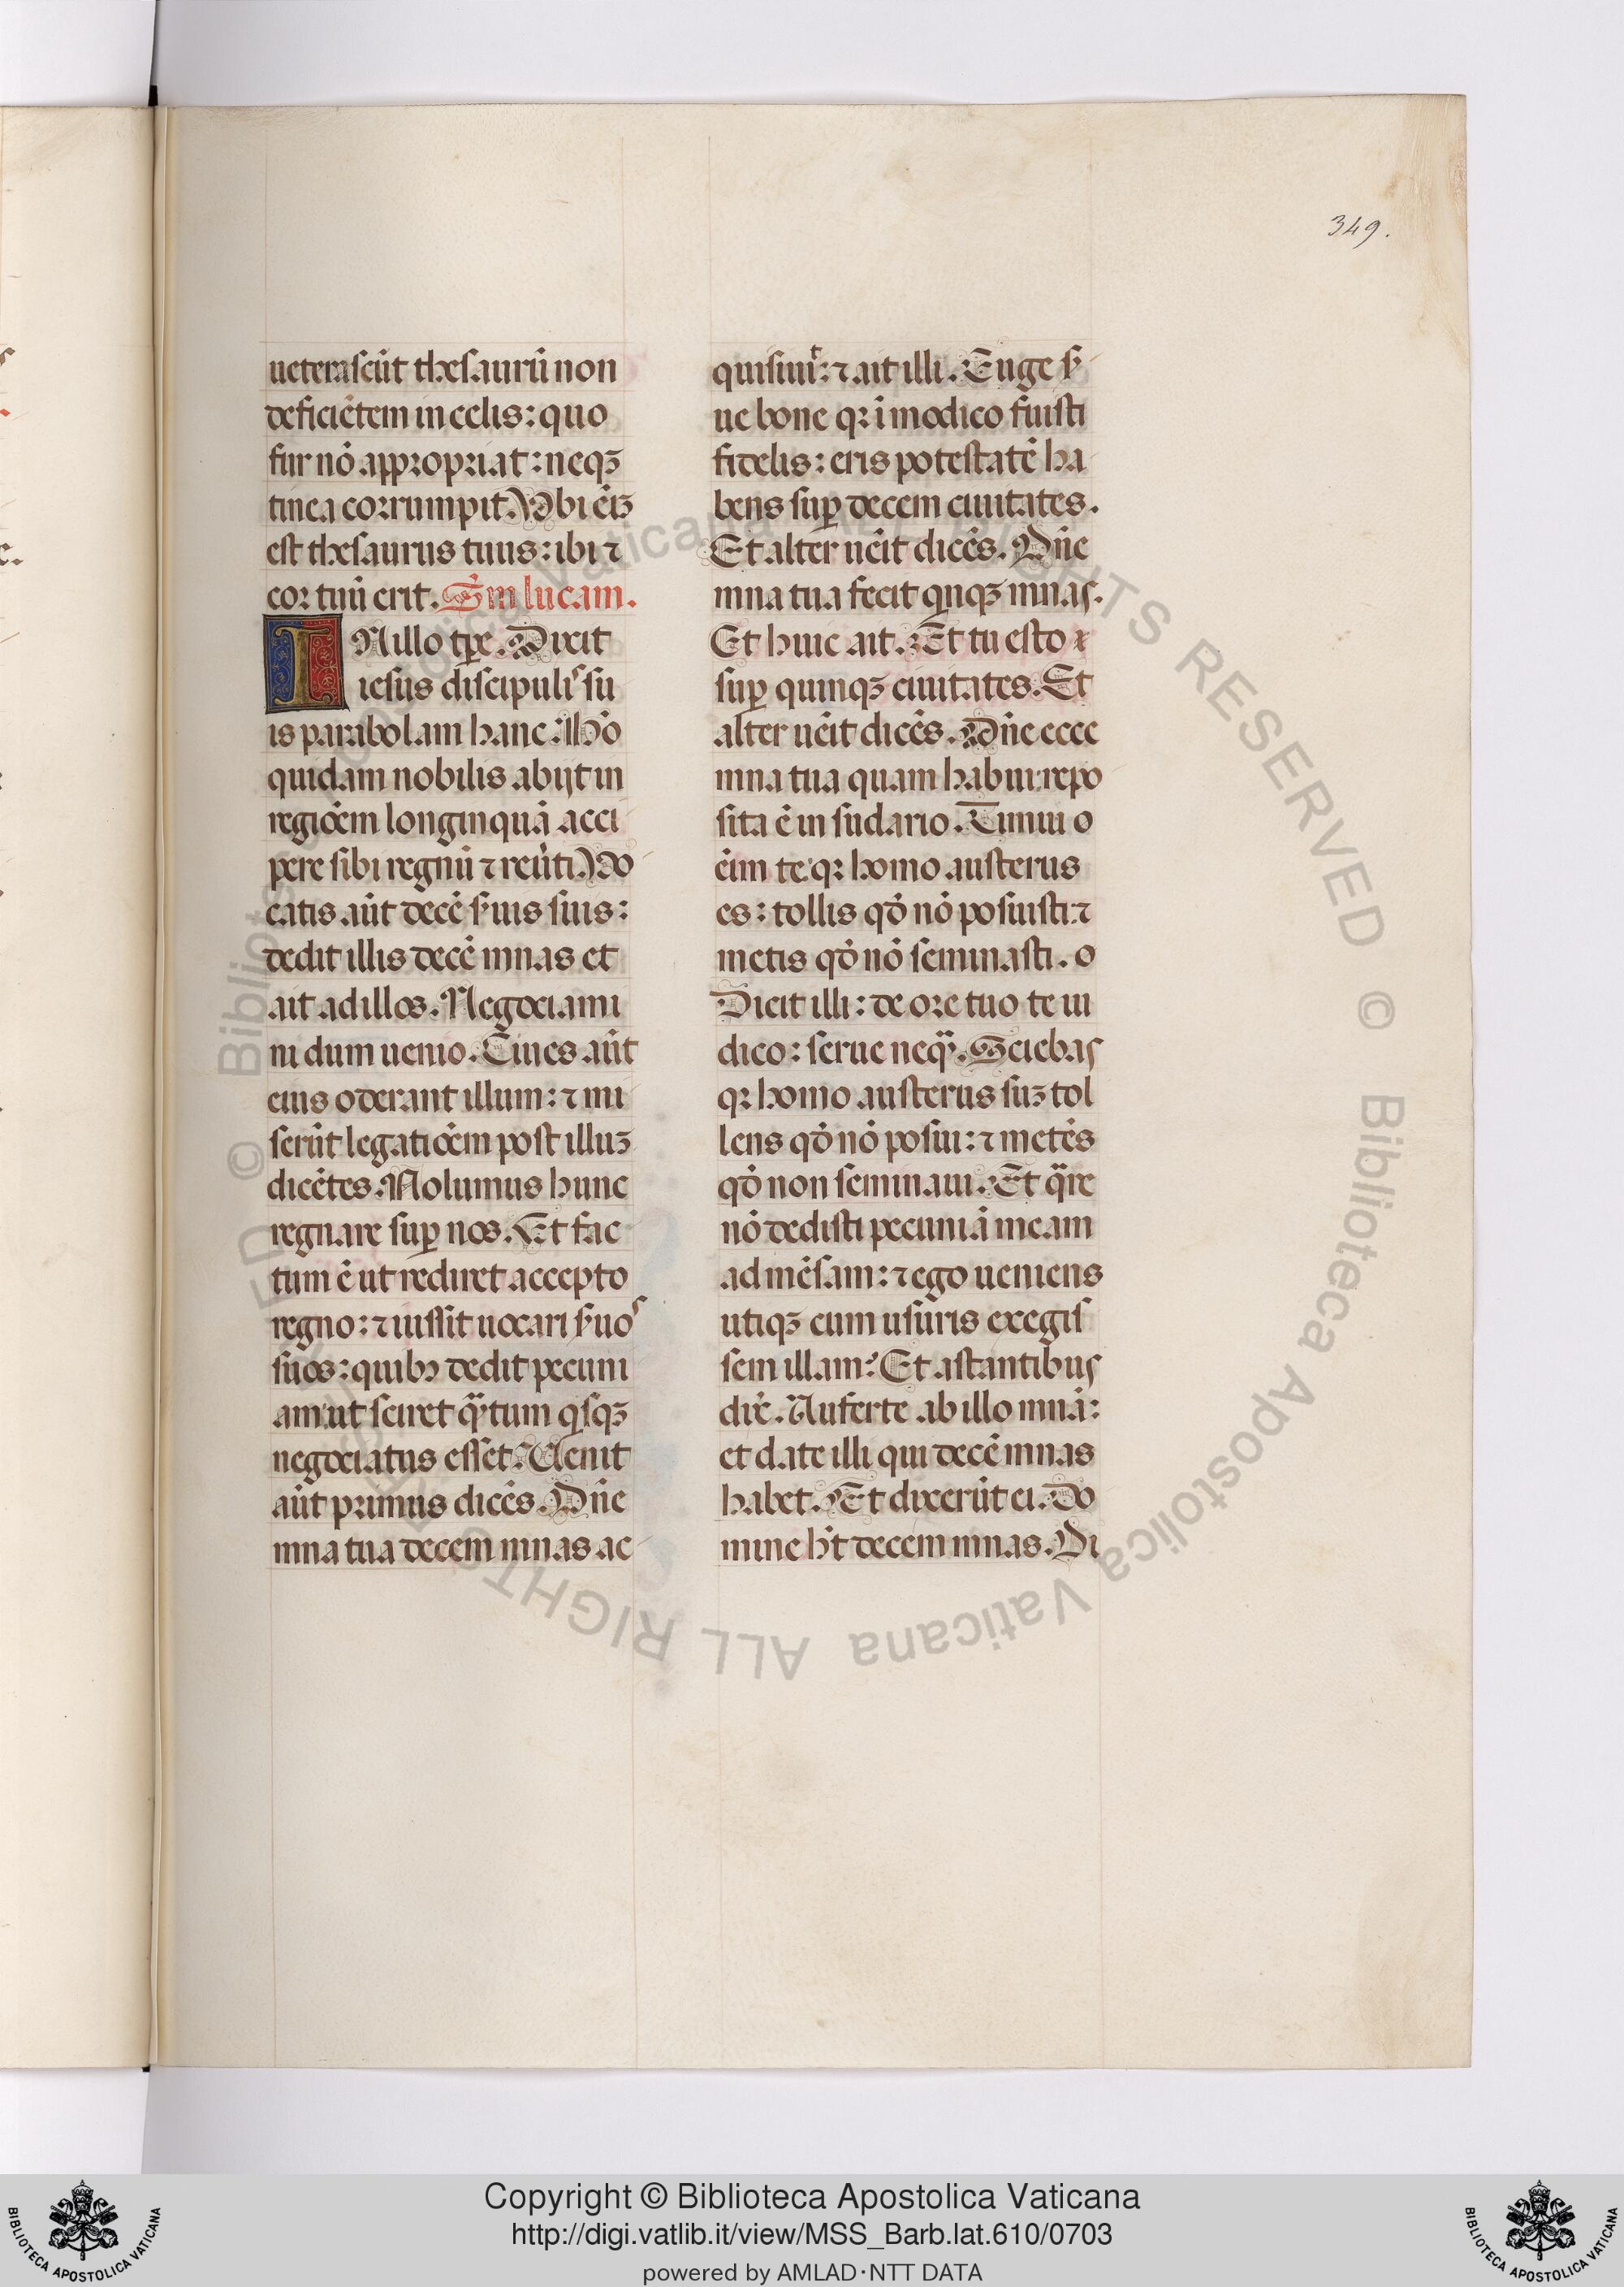 349.
ueterascūt thesaurū non
deficiētem in celis: quo
fur nō appropriat: neqꝫ
tinea corrumpit. Vbi eīꝫ
est thesaurus tuus: ibi ⁊
cor tuū erit. Scḋm lucam.
IN illo tꝑe. Dixit
iesus discipulis su
is parabolam hanc. Hō
quidam nobilis abijt in
regiōem longinquā acci
pere sibi regnū ⁊ reūti. Vo
catis aūt decē s̄uis suis:
dedit illis decē mnas et
ait ad illos. Negociami
ni dum uenio. Ciues aūt
eius oderant illum: ⁊ mi
serūt legatiōem post illuꝫ
dicētes. Nolumus hunc
regnare suꝑ nos. Et fac
tum ē ut rediret accepto
regno: ⁊ iussit uocari s̄uos
suos: quibꝫ dedit pecuni
am: ut sciret qͣtum qͥsqꝫ
negociatus esset. Uenit
aūt primus dicēs. Dn̄e
mna tua decem mnas ac
quisiuit: ⁊ ait illi. Euge s̄
ue bone qꝛ ī modico fuisti
fidelis: eris potestatē ha
bens suꝑ decem ciuitates.
Et alter uēit dicēs. Dn̄e
mna tua fecit qͥnqꝫ mnas.
Et huic ait. Et tu esto ⁊
suꝑ quinqꝫ ciuitates. Et
alter uēit dicēs. Dn̄e ecce
mna tua quam habui: repo
sita ē in sudario. Timui o
ēim te: qꝛ homo austerus
es: tollis qḋ nō posuisti: ⁊
metis qḋ nō seminasti. o
Dicit illi: de ore tuo te iu
dico: serue neqͣ. Sciebas
qꝛ homo austerus suꝫ tol
lens qḋ nō posui: ⁊ metēs
qḋ non seminaui. Et qͣre
nō dedisti pecuniā meam
ad mēsam: ⁊ ego ueniens
utiqꝫ cum usuris exegis
sem illam? Et astantibus
dix̄. Auferte ab illo mnā:
et date illi qui decē mnas
habet. Et dixerūt ei. Do
mine hꝫt decem mnas. Di
© Biblioteca Apostolica Vaticana ALL RIGHTS RESERVED
Copyright © Biblioteca Apostolica Vaticana
http://digi.vatlib.it/view/MSS_Barb.lat.610/0703
powered by AMLAD·NTT DATA
BIBLIOTECA APOSTOLICA VATICANA
BIBLIOTECA APOSTOLICA VATICANA